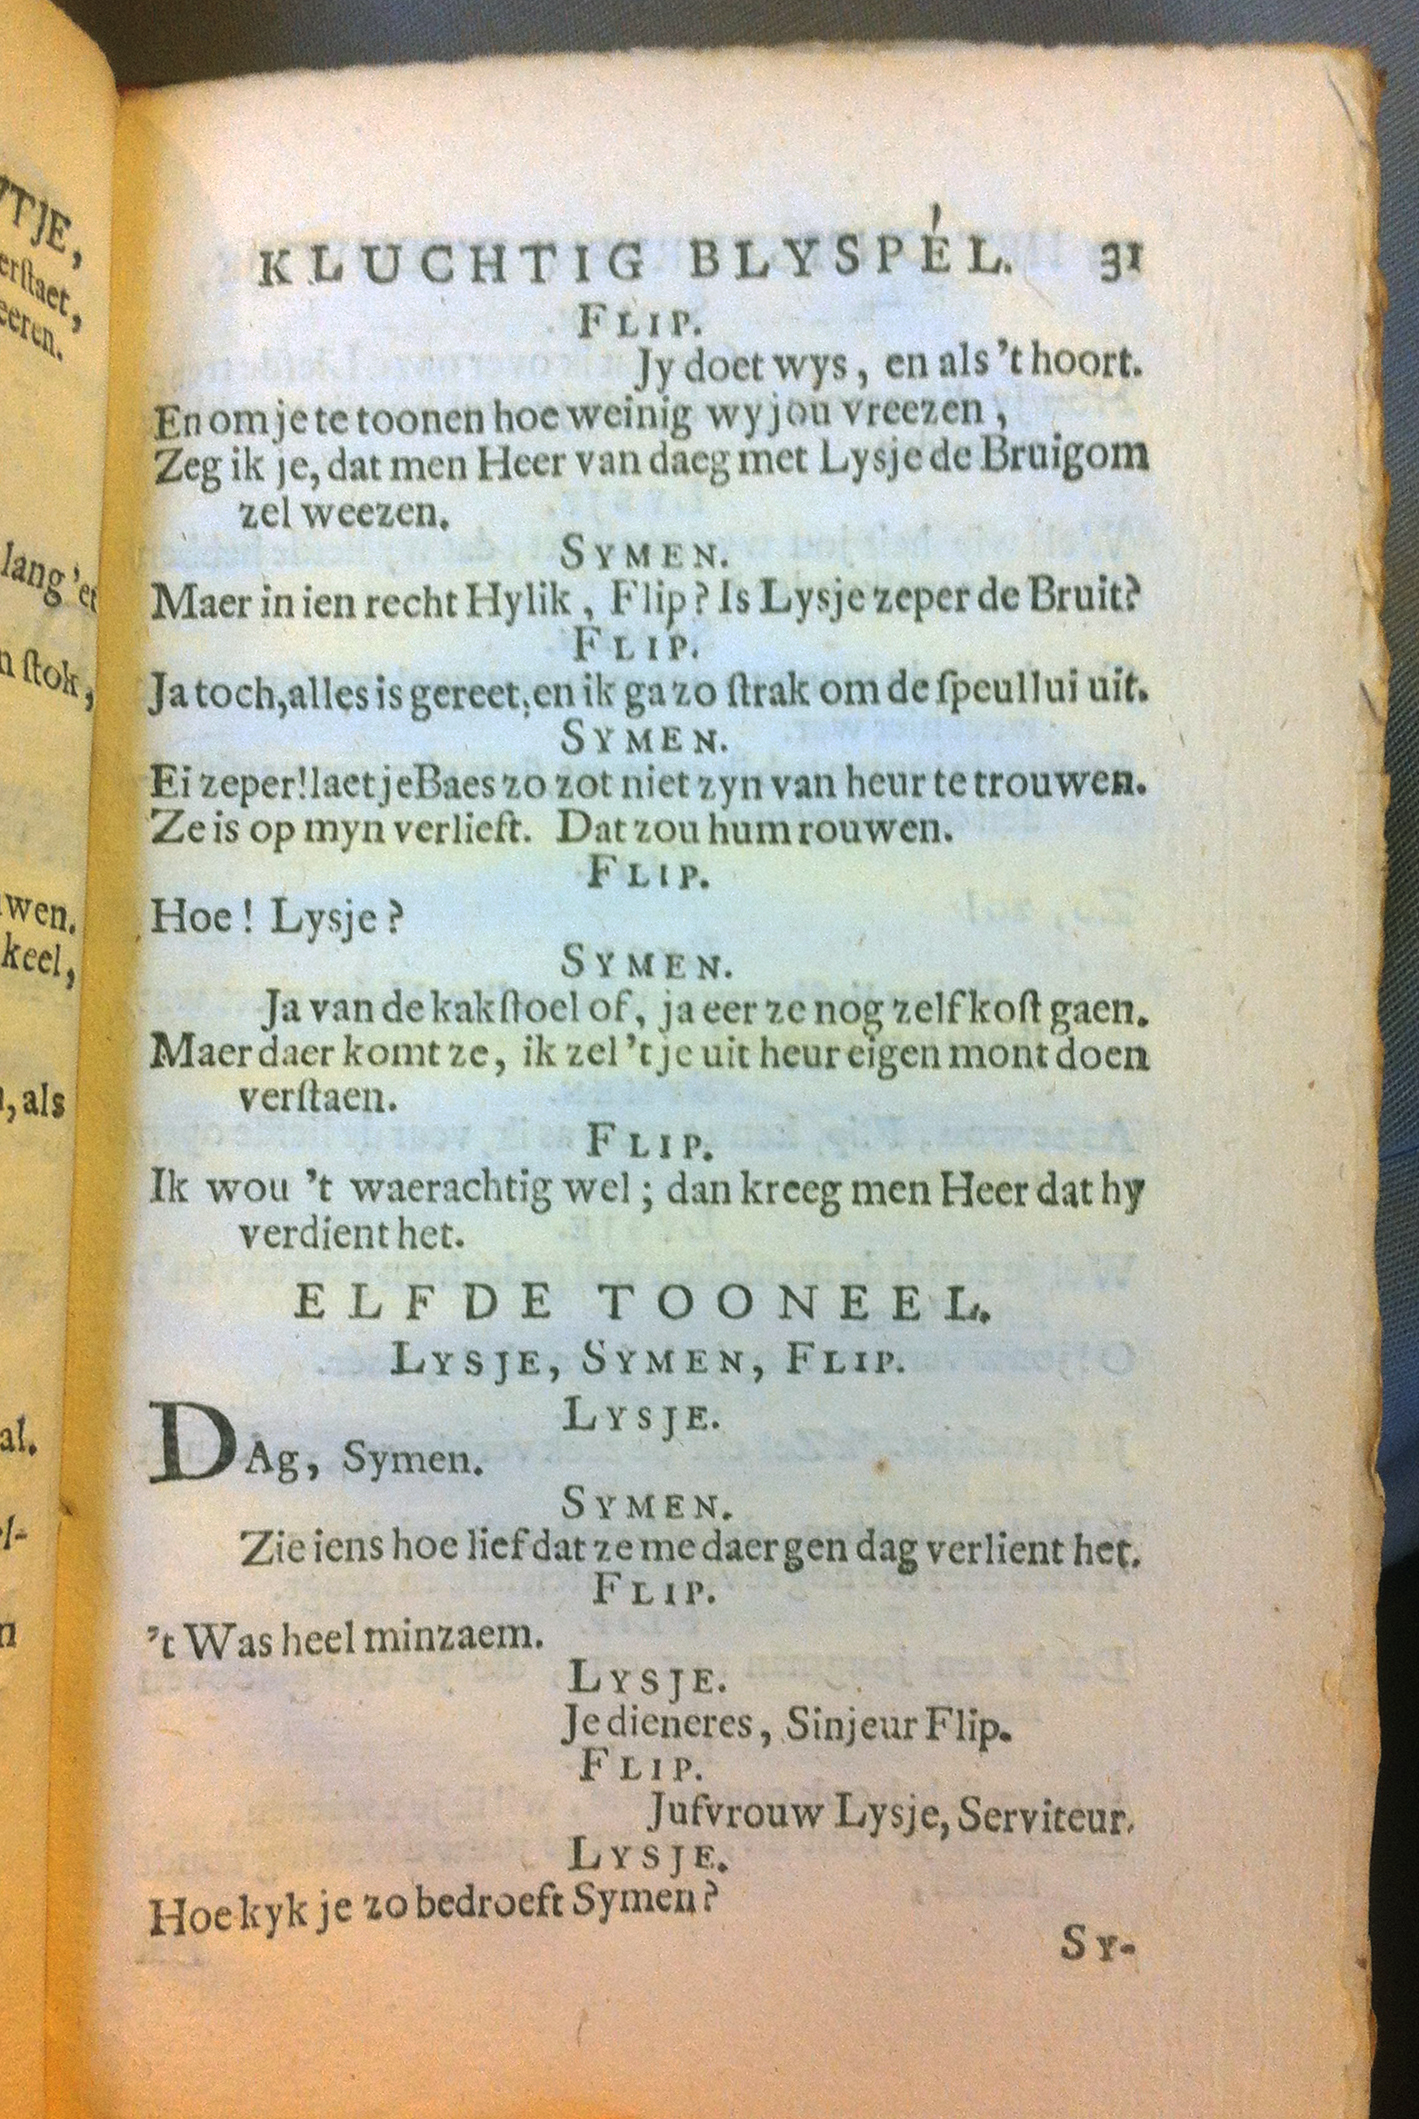 KLUCHTIG BLYSPÉL. 31
FLIP.
Jy doet wys, en als 't hoort.
En om je te toonen hoe weinig wy jou vreezen,
Zeg ik je, dat men Heer van daeg met Lysje de Bruigom
zel weezen.
SYMEN.
Maer in ien recht Hylik, Flip? Is Lysje zeper de Bruit?
FLIP.
Ja toch, alles is gereet, en ik ga zo ſtrak om de ſpeullui uit.
SYMEN.
Ei zeper! laet je Baes zo zot niet zyn van heur te trouwen.
Ze is op myn verlieft. Dat zou hum rouwen.
FLIP.
Hoe! Lysje?
SYMEN.
Ja van de kakſtoel of, ja eer ze nog zelf koſt gaen.
Maer daer komt ze, ik zel 't je uit heur eigen mont doen
verſtaen.
FLIP.
Ik wou 't waerachtig wel; dan kreeg men Heer dat hy
verdient het.
ELFDE TOONEEL.
LYSJE, SYMEN, FLIP.
LYSJE.
DAg, Symen.
SYMEN.
Zie iens hoe lief dat ze me daer gen dag verlient het.
FLIP.
't Was heel minzaem.
LYSJE.
Je dieneres, Sinjeur Flip.
FLIP.
Jufvrouw Lysje, Serviteur.
LYSJE.
Hoe kyk je zo bedroeft Symen?
SY-
YTJE,
erſtaet,
eeren.
lang 'et
n ſtok,
uwen.
keel,
, als
al.
l-
n